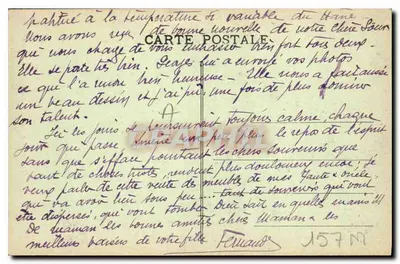 habitué à la température si variable du Hâvre
Nous avons reçu de bonne nouvelle de notre chère Sœur
CARTE POSTALE
qui nous charge de vous embrasser bien fort tous deux.
Elle se porte très bien. lui a envoyé vos photos
ce qui l'a rendu bien heureuse - Elle nous a fait aussi
un beau dessin et j'ai pu une fois de plus admirer
son talent.
Ici les jours se poursuivent toujours calme, chaque
jour qui passe amène un peu plus le repos de l'esprit
sans que s'efface pourtant les chers souvenirs que
tant de choses rendent plus douloureux encore; je
veux parler de cette vente de meuble de mes tante & oncle,
qui va avoir lieu sous peu - tant de souvenirs qui vont
être dispersés, qui vont tomber Dieu sait en quelles mains !!!
de maman les bonnes amitiés chère Maman & les
meilleurs baisers de votre fille Fernande
157